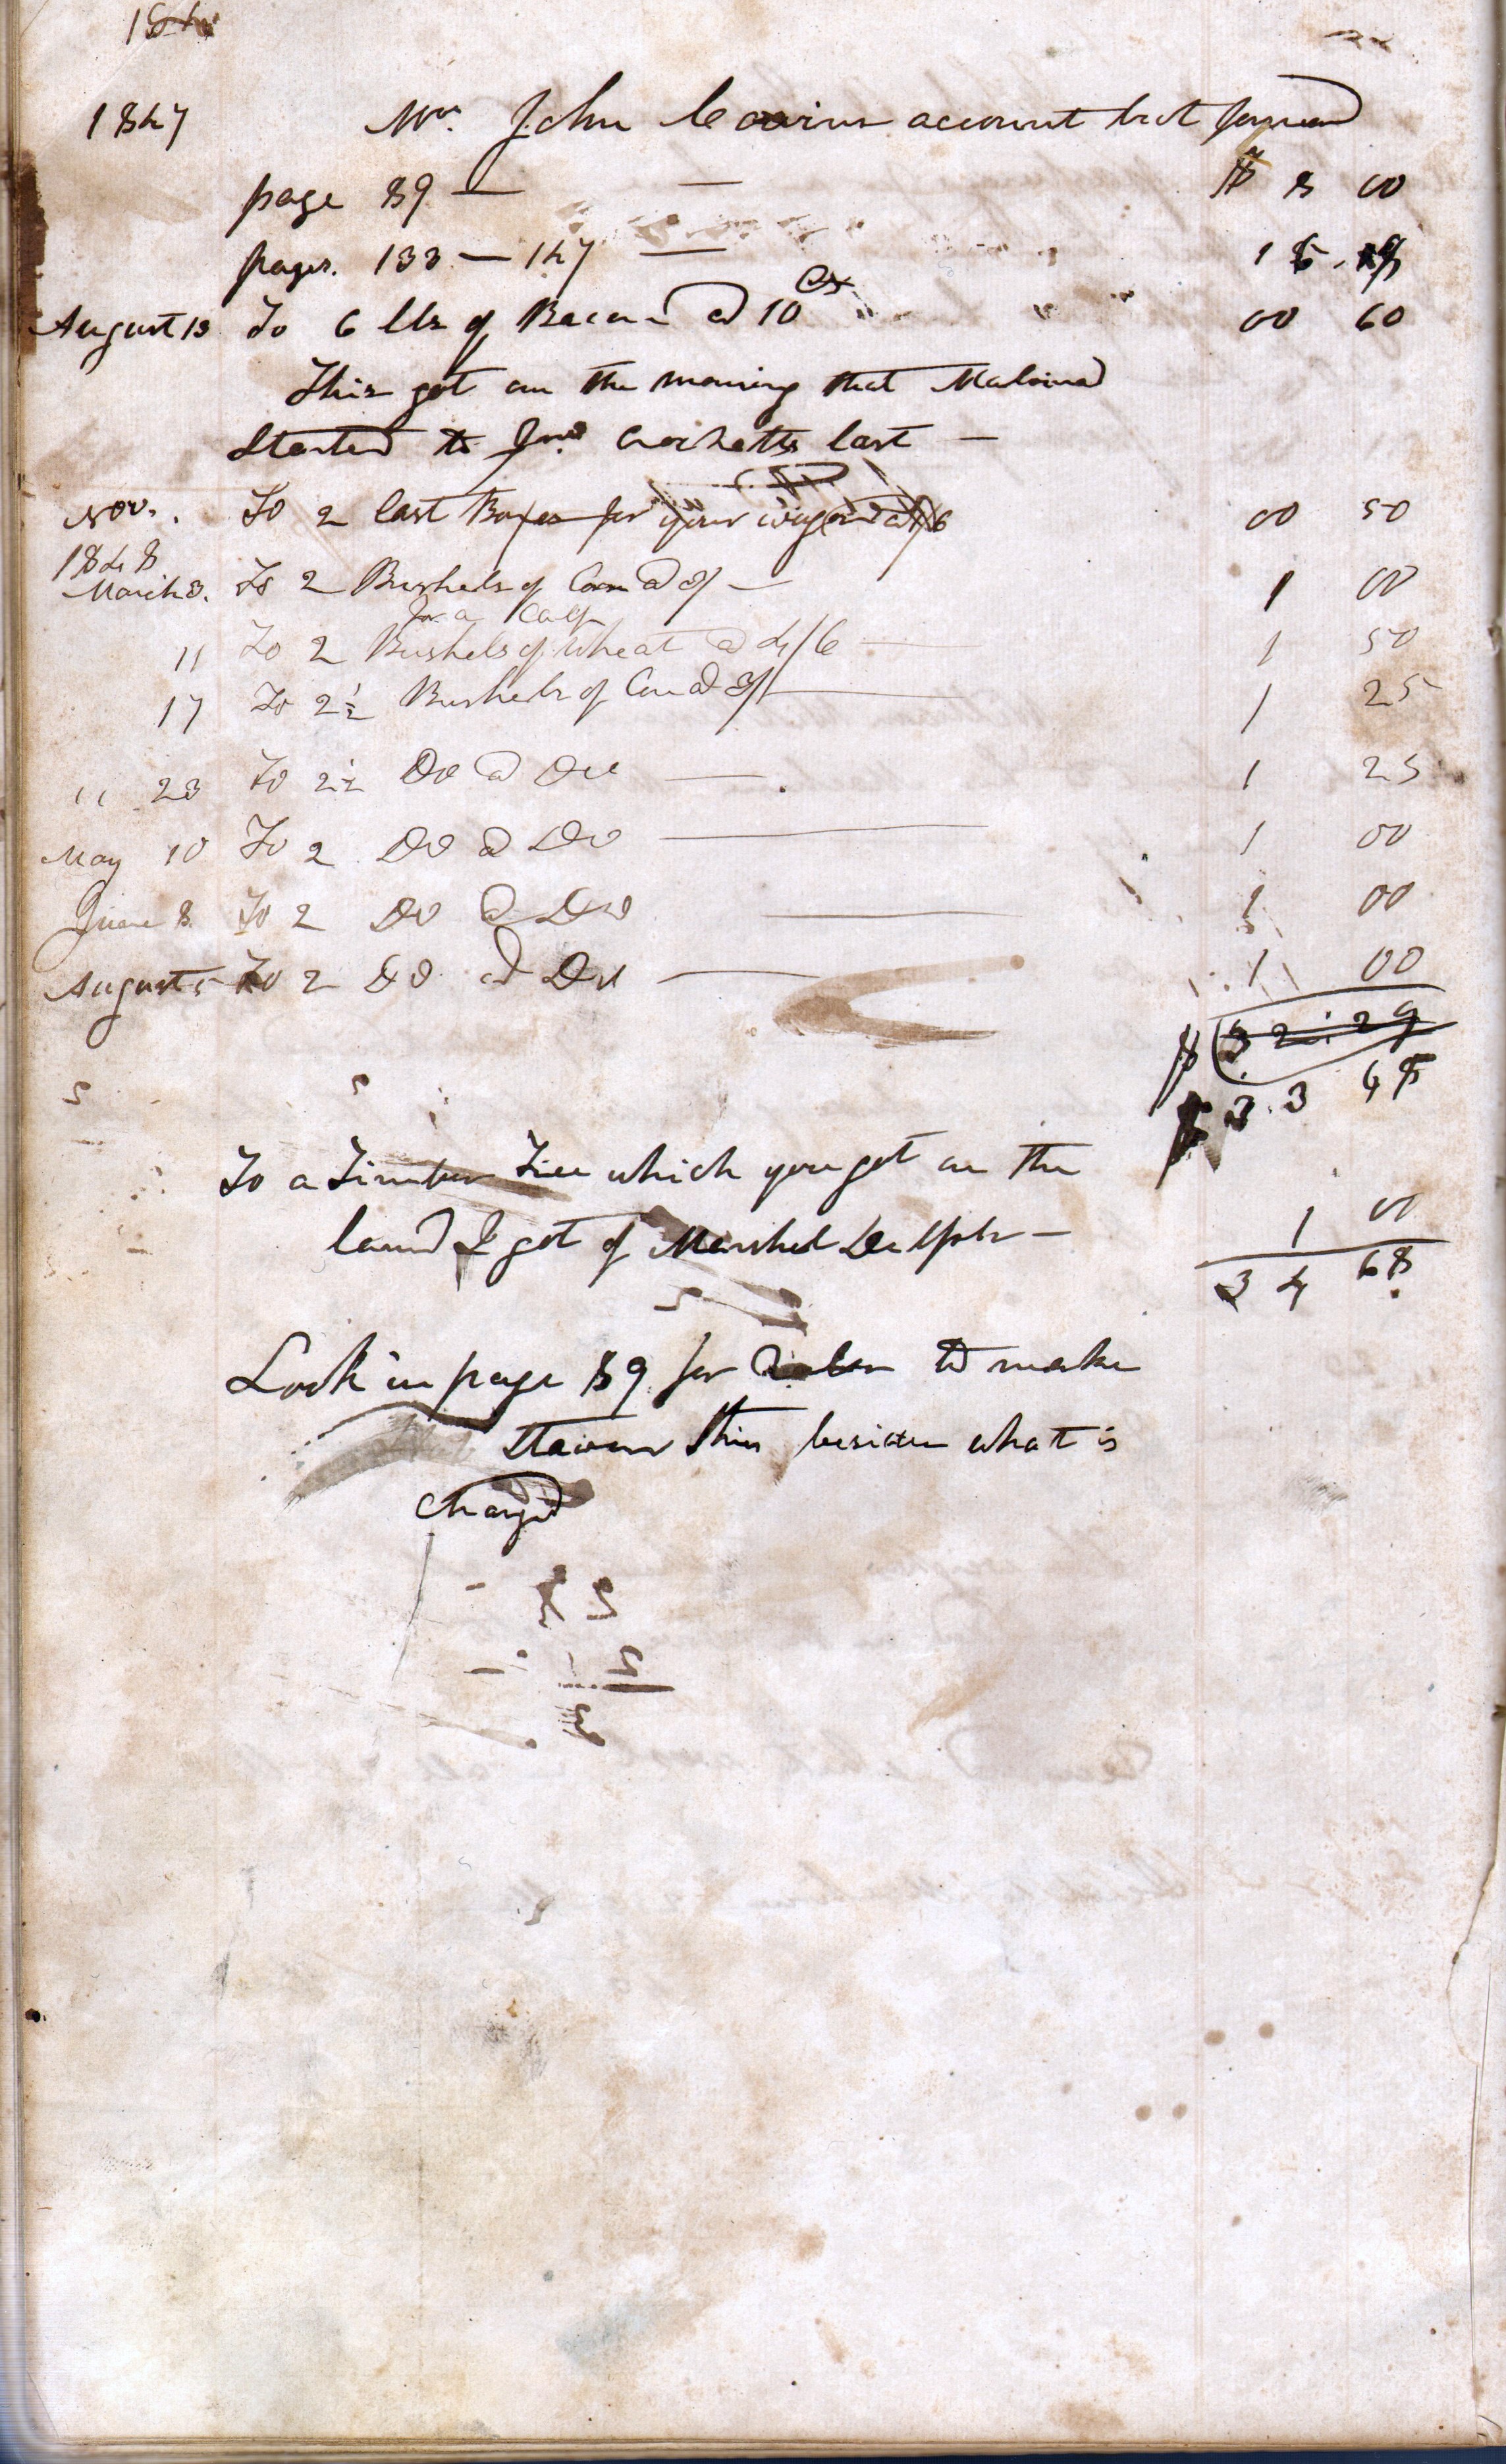 184
1847 Mr. John Cowins account brot forward
page 89 — — $ 8 00
pages. 133 — 147 —
August 13 To 6 lbs of Bacon @ 10 cts 00 60
This got on the morning that Malvina
Started to Jno. Crocketts last —
Nov. To 2 Cast Boxes for your wagon at 1/6 00 50
1848
March 3. To 2 Bushels of Corn @ 3/ — 1 00
for a Calf
11 To 2 Bushels of wheat @ 4/6 — 1 50
17 To 2½ Bushels of Corn @ 3/ — 1 25
" 23 To 2½ Do @ Do — 1 25
May 10 To 2 Do @ Do — 1 00
June 8. To 2 Do @ Do — 1 00
August 5 To 2 Do @ Do — 1 00
$ 32.29
$ 33 68
To a Timber Tree which you got on the
land I got of Marshel Delph — 1 00
34 68
Look in page 89 for to make
Staves this besides what is
Charged